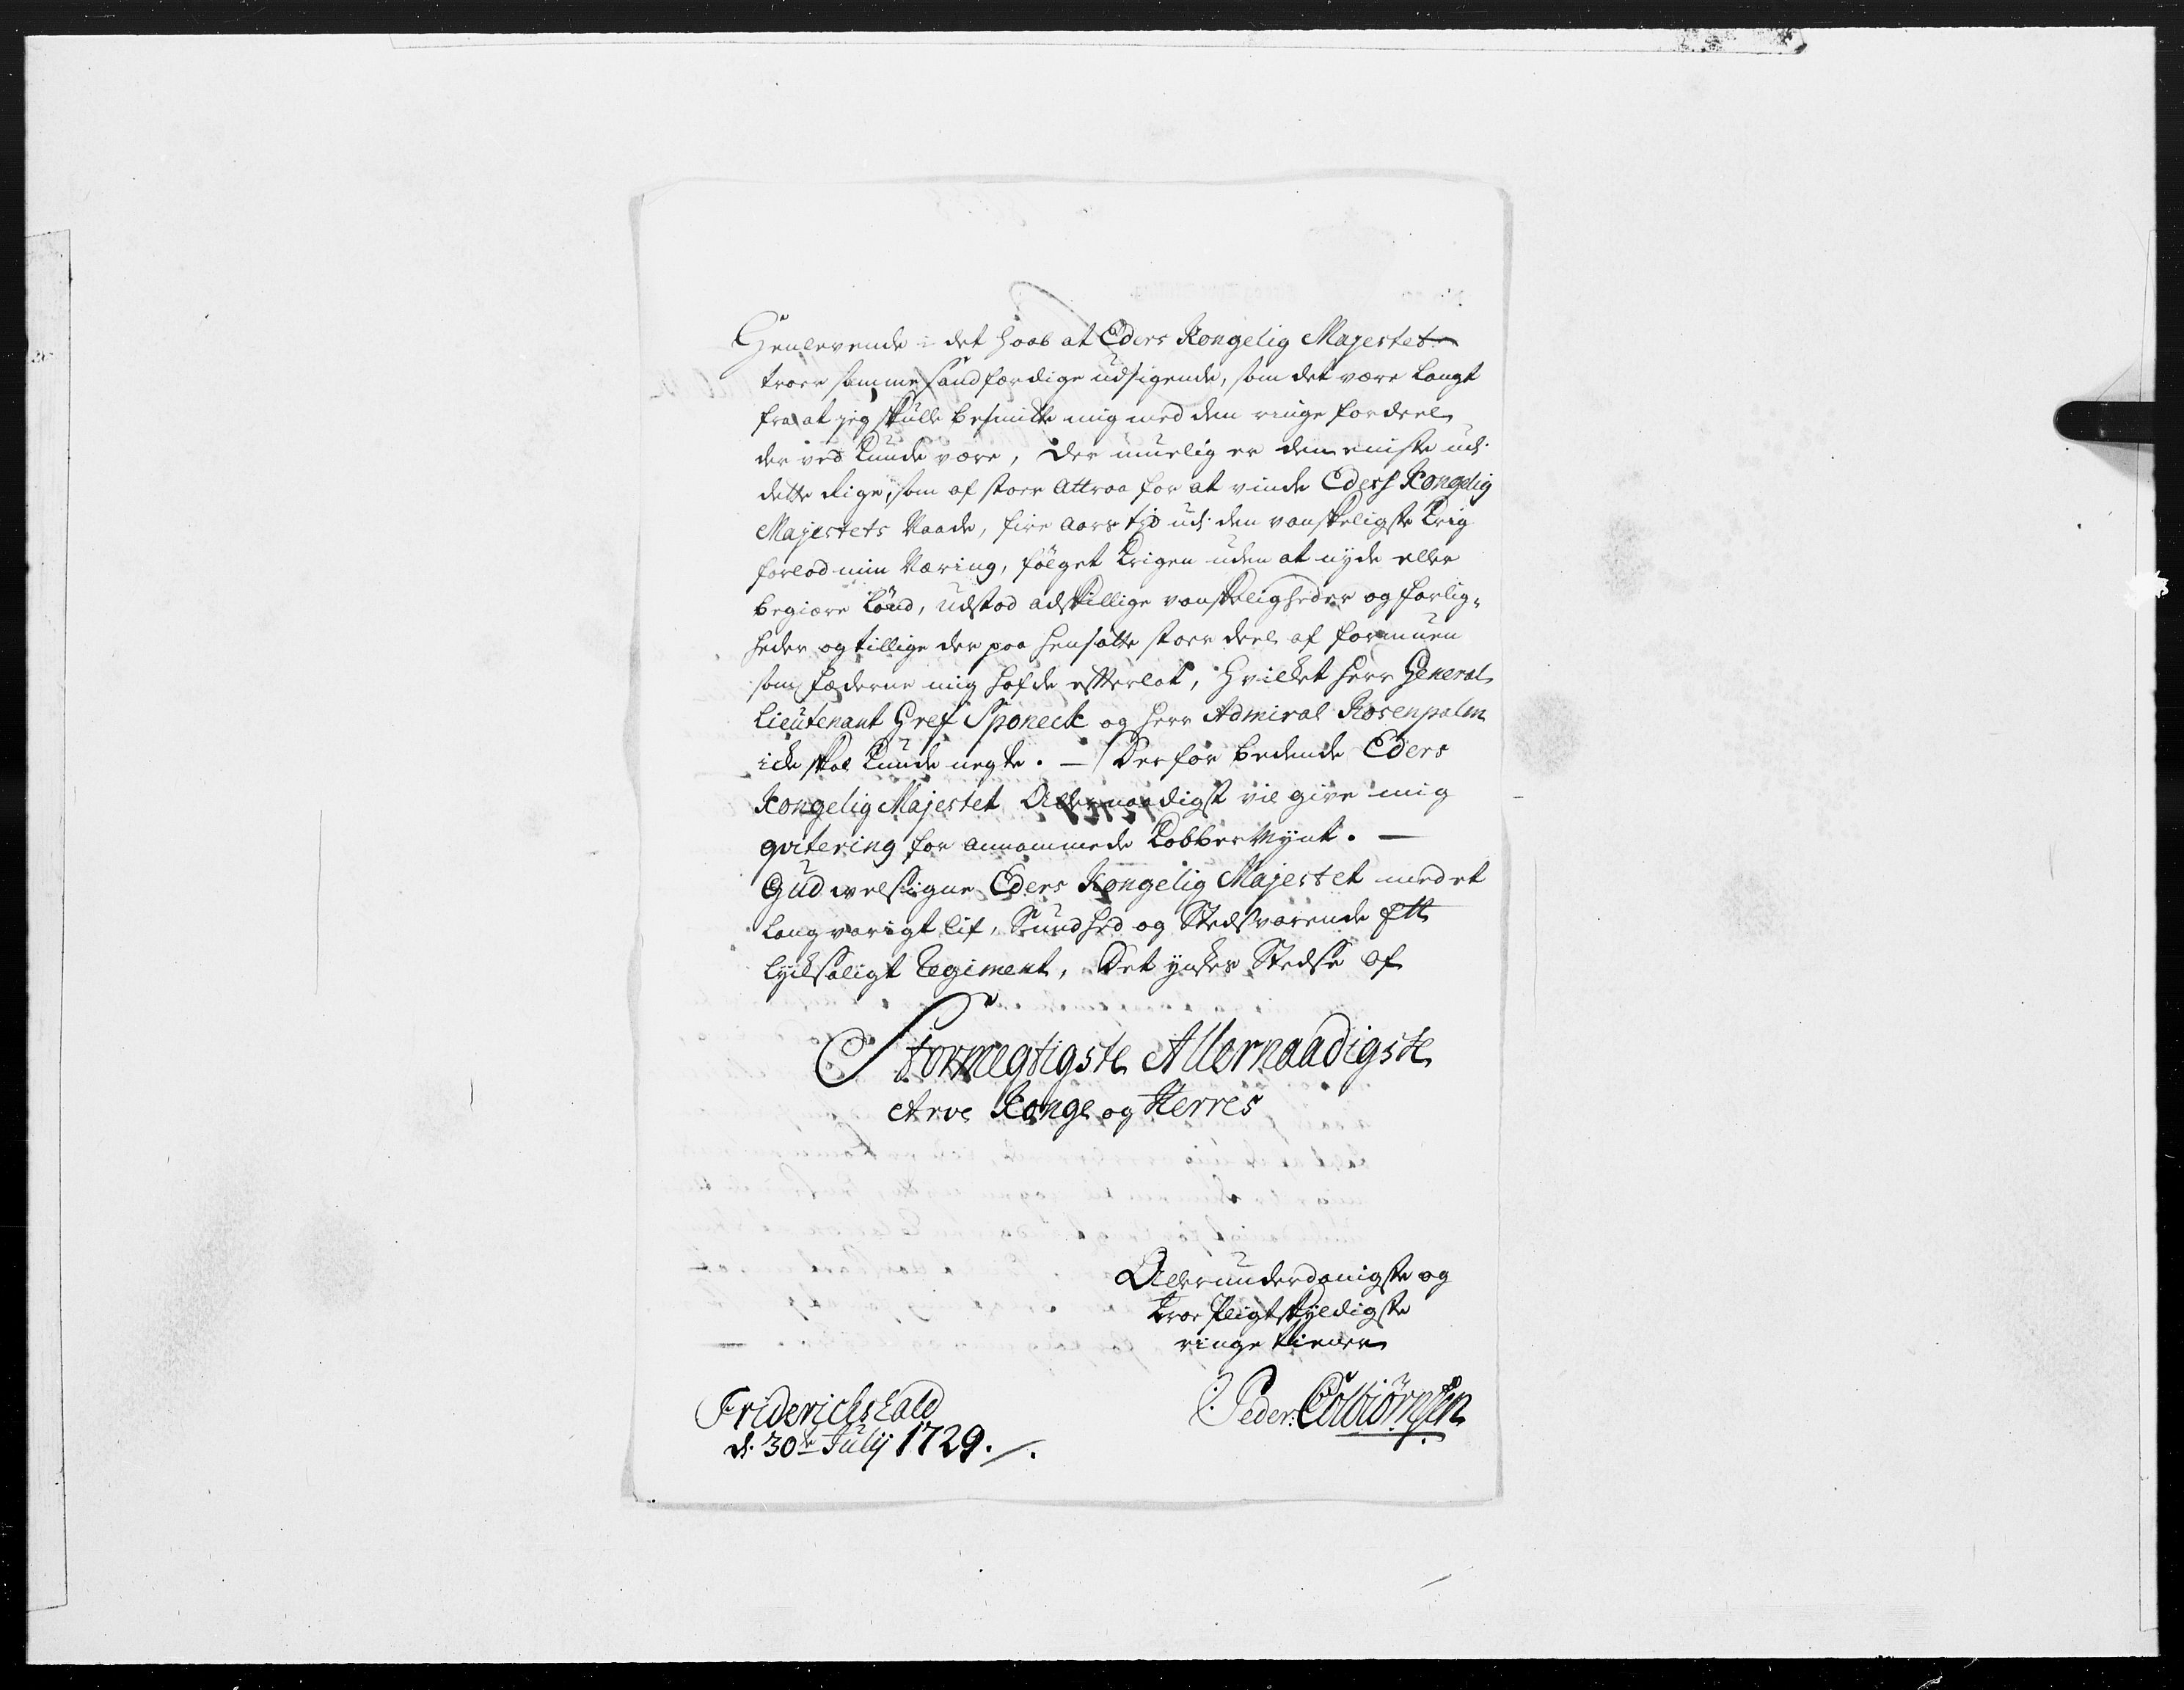 Henlevende i det haab at Eders Kongelig Majestet
troer samme sandfærdige udsigende, som det være langt
fra at jeg skulle besmitte mig med den ringe fordeel
der ved kunde være, der muelig er den eniste udi
dette Rige, som af stoer attraa for at vinde Eders Kongelig
Majestets Naade, fire aars tid udi den vanskeligste Krig
forlod min Næring, følget Krigen uden at nyde eller
begiære Lønd, udstod adskillige vanskeligheder og farlig-
heder og tillige der paa hensatte stoer deel af formuen
som fæderne mig hafde efterlat, Hvilket Herr General
Lieutenant Gref Sponeck og Herr Admiral Rosenpalm
icke skal kunde negte. – Derfor bedende Eders
Kongelig Majestet Allernaadigst vil give mig
qvitering for annammede Kobber Mynt. –
Gud velsigne Eders Kongelig Majestet med et
langvarigt lif, Sundhed og Stedsvarende Ett
lycksaligt Regiment, Det ynsker Stedse af
Stormegtigste Allernaadigste
Arve Konge og Herres
Allerunderdanigste og
troe Pligtskyldigste
ringe tiener
Peder Colbiørnsen
Friderichshald
d. 30te Julij 1729.